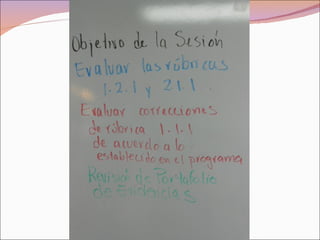 Objetivo de la Sesión
Evaluar las rúbricas
1.2.1 y 2.1.1.
Evaluar correcciones
de rúbrica 1.1.1
de acuerdo a lo
establecido en el programa
Revisión de Portafolio
de Evidencias